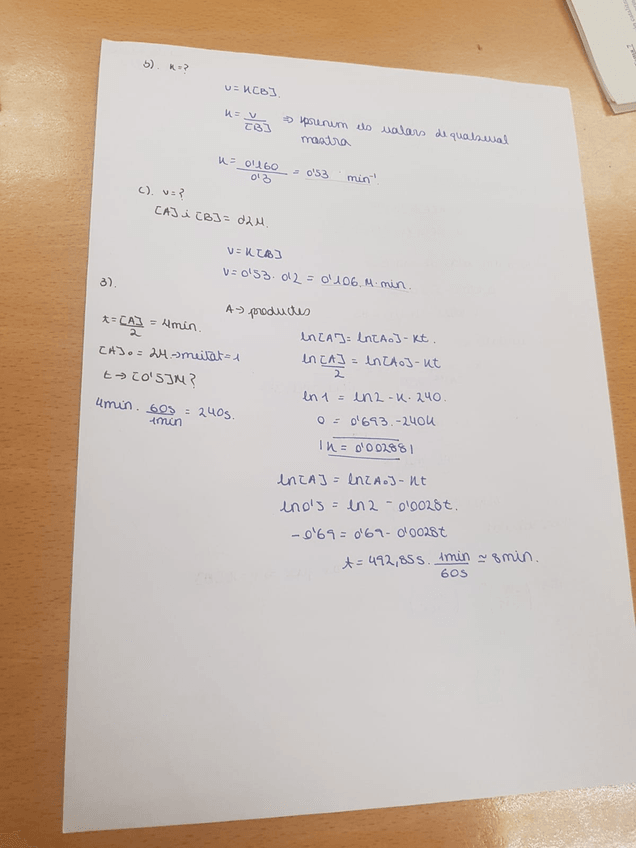 b). K=?
v=K[B].
K=v/[B] => prenem els valors de qualsevol
mostra
K=0'160/0'3 = 0'53 min⁻¹
c). v=?
[A] i [B] = 0'2M.
v=K[B]
v=0'53. 0'2 = 0'106. M. min.
3).
A→ productes
t=[A]/2 = 4min.
[A]₀ = 2M→meitat=1
t → [0'5]M?
4min. 60s/1min = 240s.
ln[A]= ln[A₀]-Kt.
ln[A]/2 = ln[A₀]-Kt
ln 1 = ln2 -K. 240.
0 = 0'693.-240K
K = 0'00288
ln[A] = ln[A₀]-Kt
ln0'5 = ln2 - 0'0028t.
-0'69 = 0'69- 0'0028t
t= 492,85s. 1min/60s ≃ 8min.